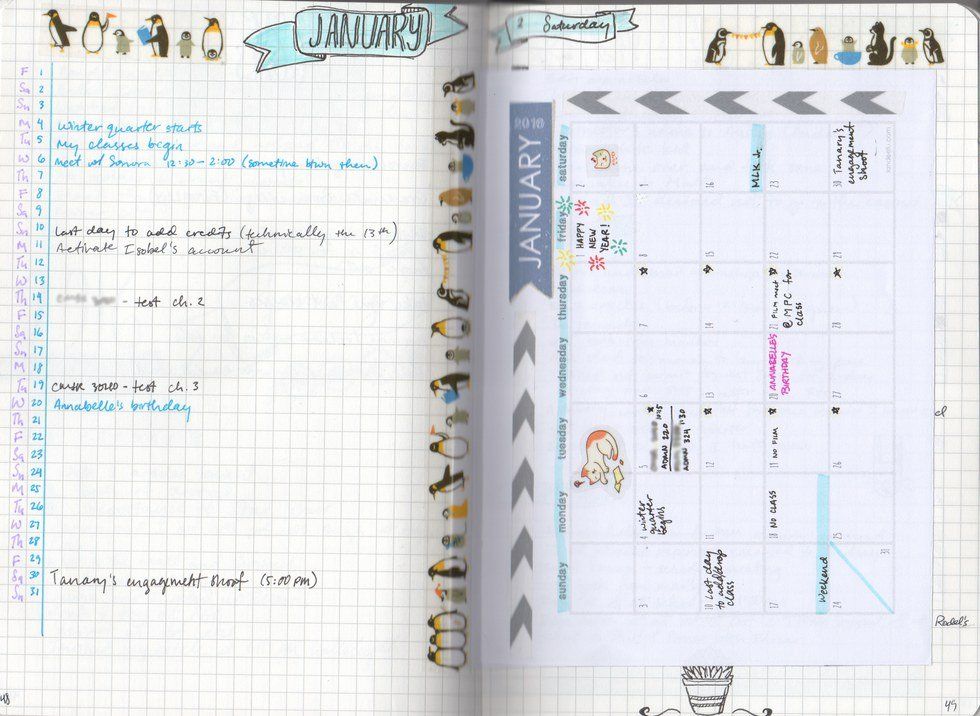 JANUARY
F 1
Sa 2
Sn 3
M 4 Winter quarter starts
Tu 5 My classes begin
W 6 Meet w/ Sonora 12:30-2:00 (sometime btwn then)
Th 7
F 8
Sa 9
Sn 10 Last day to add credits (technically the 13th)
M 11 Activate Isobel's account
Tu 12
W 13
Th 14 - test ch. 2
F 15
Sa 16
Sn 17
M 18
Tu 19 - test ch. 3
W 20 Annabelle's birthday
Th 21
F 22
Sa 23
Sn 24
M 25
Tu 26
W 27
Th 28
F 29
Sa 30 Tanary's engagement shoot (5:00 pm)
Sn 31
48
2 Saturday
JANUARY 2016
sunday monday tuesday wednesday thursday friday saturday
1 HAPPY
NEW
YEAR!
2
3
4 Winter
quarter
begins
5
ADMN 220 10:15
ADMN 324 1:30
6
7
8
9
10 Last day
to add/drop
class
11
12
13
14
15
16
MLK Jr.
17
18 NO CLASS
19 NO FILM
20 ANNABELLE'S
BIRTHDAY
21 FILM meet
@ MPC for
class
22
23
Weekend
24
31
25
26
27
28
29
30 Tanary's
engagement
shoot
49